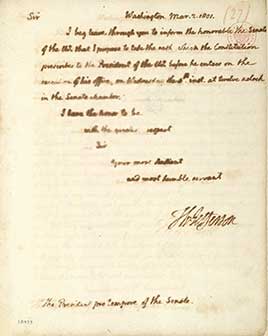 Sir Washington Mar. 2. 1801.
I beg leave through you to inform the honorable the Senate
of the US. that I propose to take the oath which the Constitution
prescribes to the President of the US. before he enters on the
execution of his office, on Wednesday the 4th inst. at twelve oclock
in the Senate chamber.
I have the honor to be
with the greatest respect
Sir
Your most obedient
and most humble servant
Th: Jefferson
The President pro tempore of the Senate.